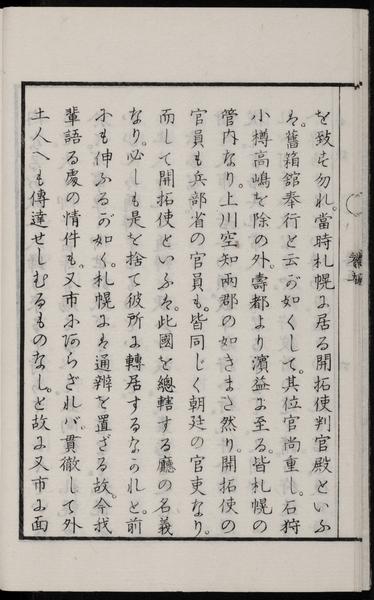 を致も勿れ。當時札幌に居る開拓使判官殿といふ
は。舊箱館奉行と云が如くして。其位官尚重し。石狩
小樽高嶋を除の外。壽都より濱益に至る。皆札幌の
管内なり。上川空知兩郡の如きまさ然り。開拓使の
官員も兵部省の官員も。皆同じく朝廷の官吏なり。
而して開拓使といふは。此國を總轄する廳の名義
なり。必しも是を捨て彼所に轉居するなかれと。前
にも伸ふるが如く。札幌には通辨を置ざる故。今找
輩語る處の情件も。又市にあらざれバ。貫徹して外
土人へも傳達せしむるものなし。と故に又市に面